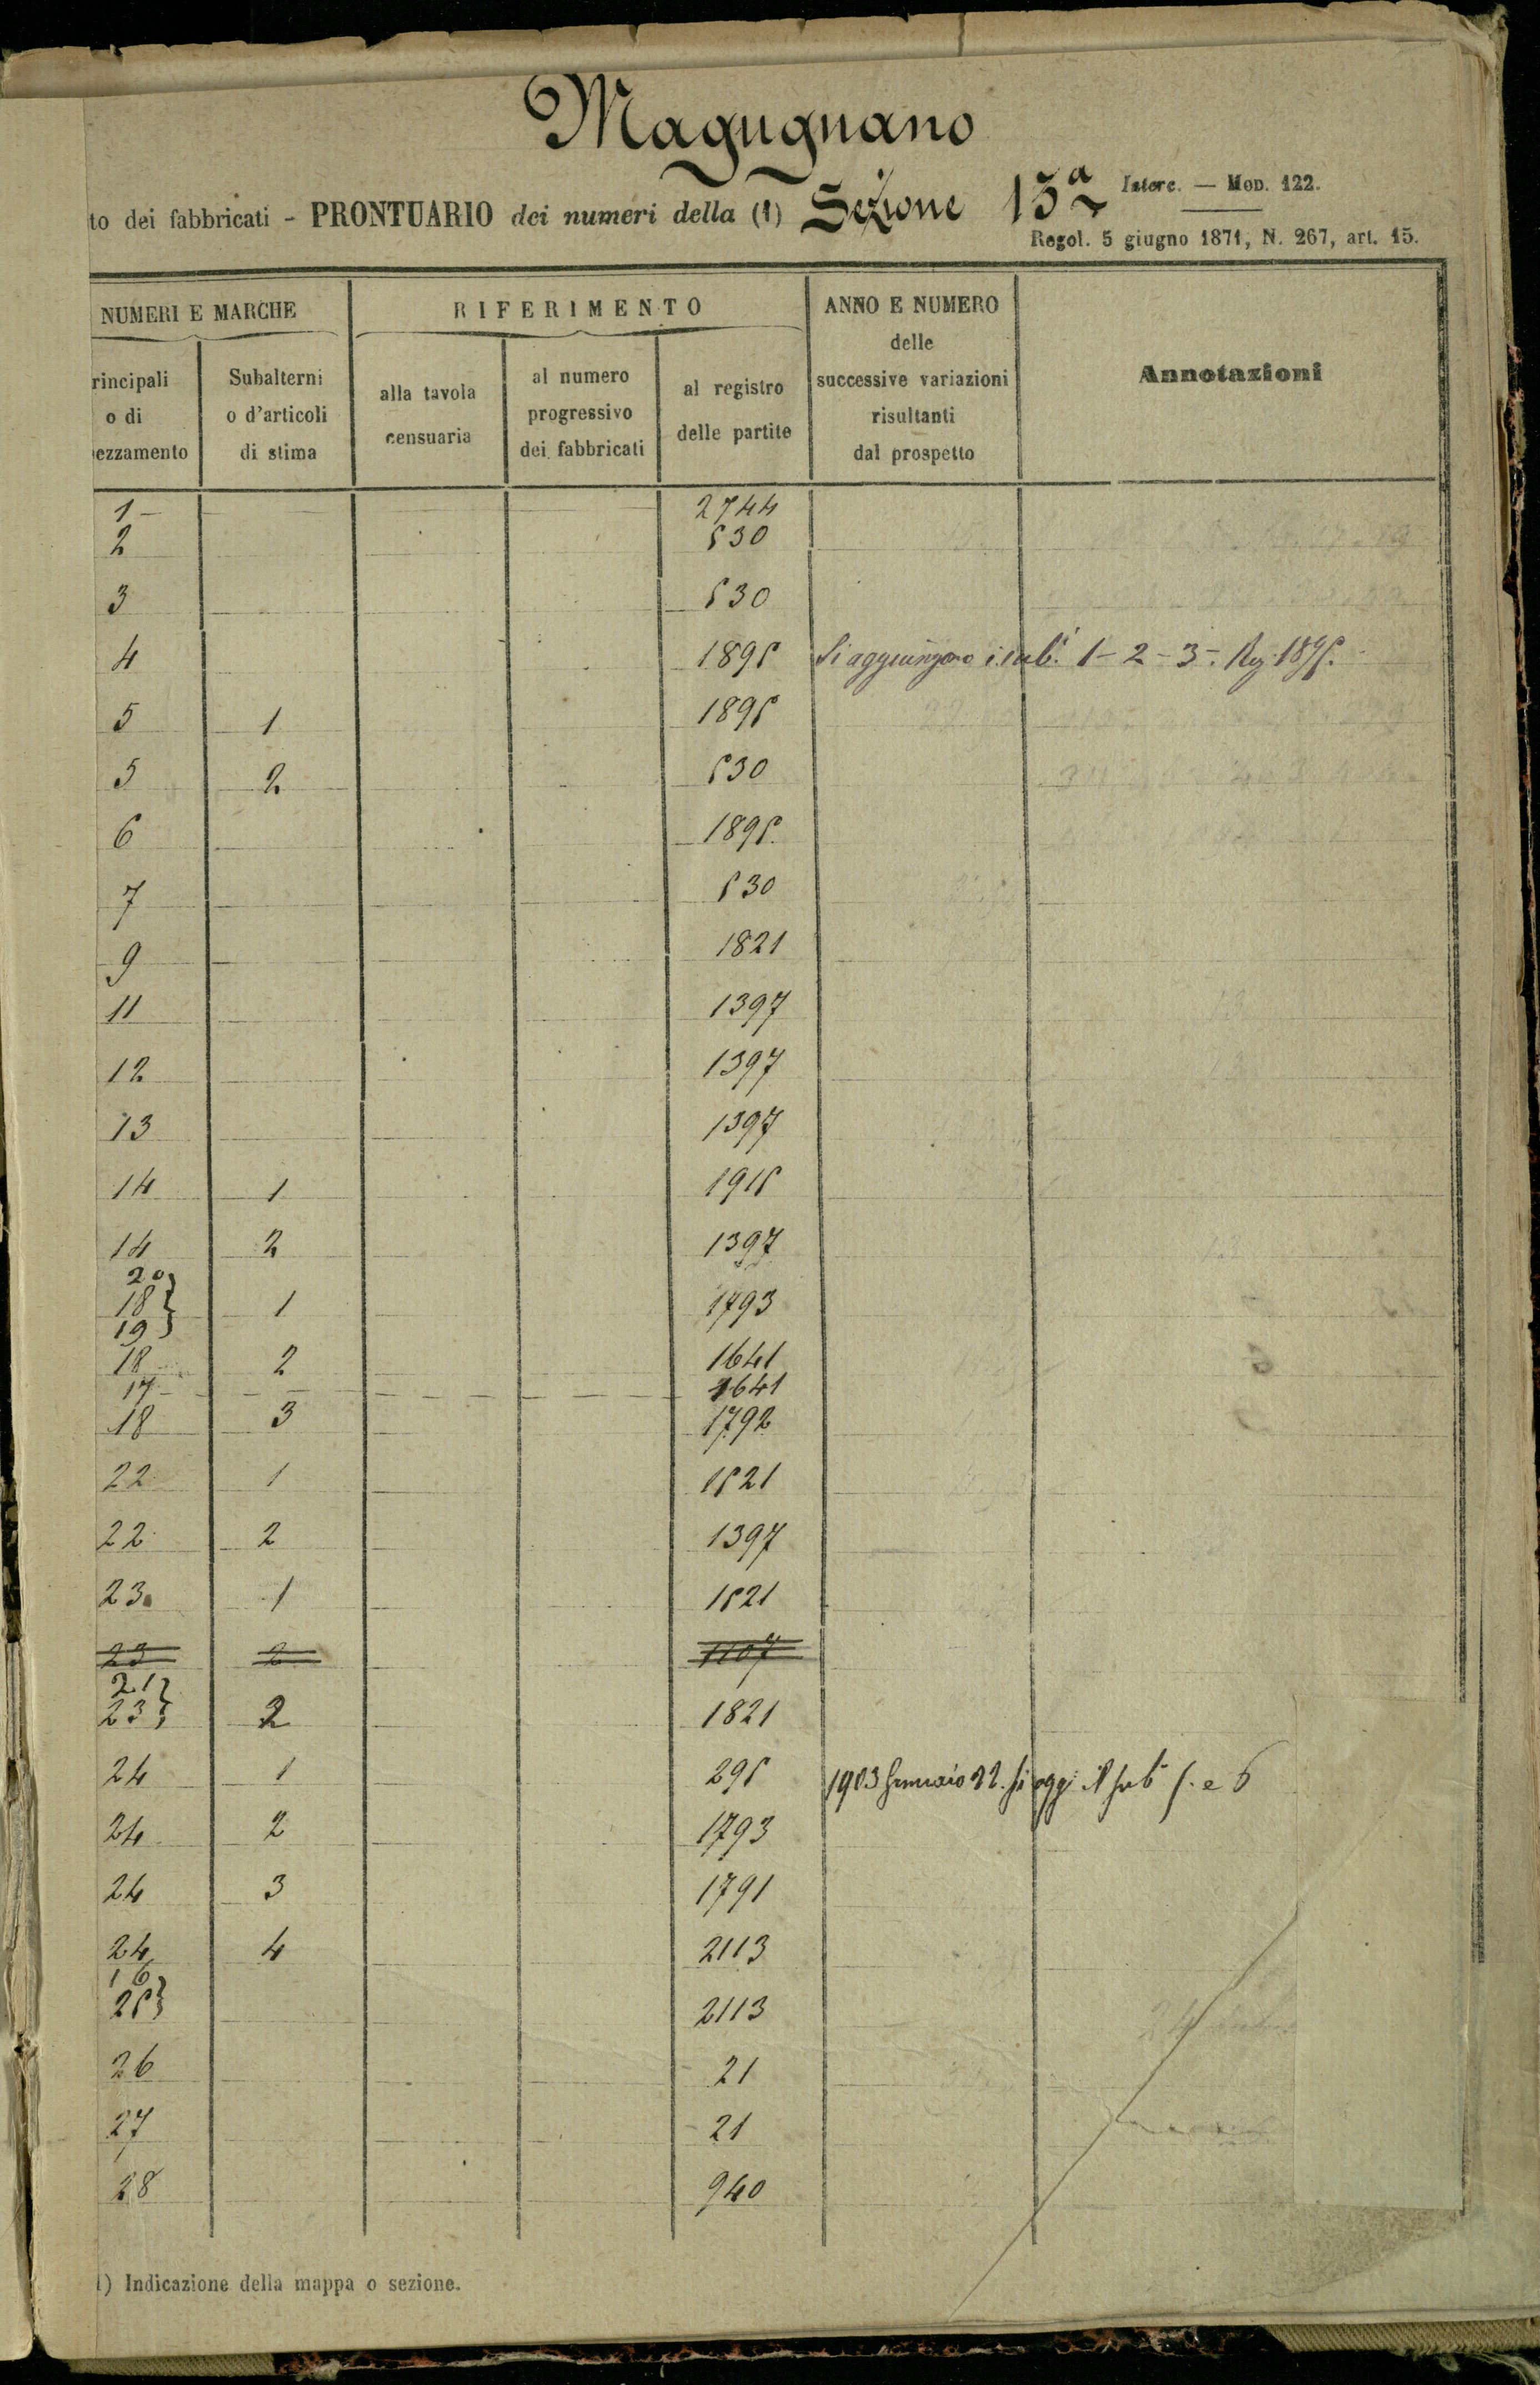 Magugnano
to dei fabbricati - PRONTUARIO dei numeri della (1) Sezione 13a
Interc. — Mod. 122.
Regol. 5 giugno 1871, N. 267, art. 15.
NUMERI E MARCHE
rincipali
o di
ezzamento
Subalterni
o d'articoli
di stima
RIFERIMENTO
alla tavola
censuaria
al numero
progressivo
dei fabbricati
al registro
delle partite
ANNO E NUMERO
delle
successive variazioni
risultanti
dal prospetto
Annotazioni
1 — 2744
2 530
3 530
4 1895 Si aggiungono i sub.i 1 - 2 - 3 -. Reg. 1895.
5 1 1895
5 2 530
6 1895.
7 530
9 1821
11 1397
12 1397
13 1397
14 1 1915
14 2 1397
20
18 } 1 1793
19
18 2 1641
17 — — — — — 1641
18 3 1792
22 1 1521
22 2 1397
23 1 1521
23 2 1107
21
23 } 2 1821
24 1 295 1903 Gennaio 22. Si agg: il sub 5. e 6
24 2 1793
24 3 1791
24 4 2113
16
25 } 2113
26 21
27 21
28 940
1) Indicazione della mappa o sezione.